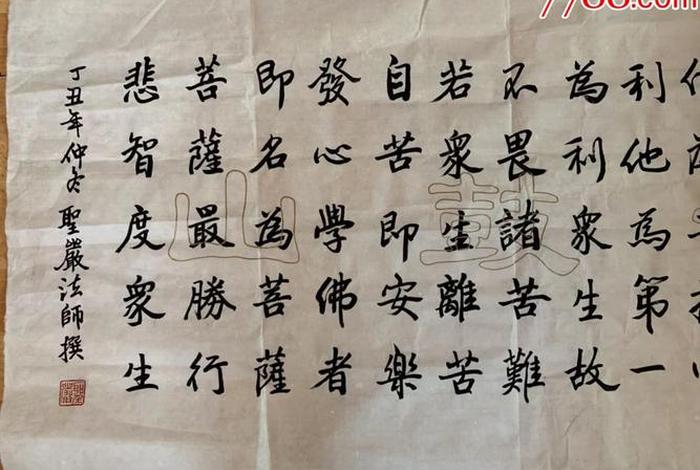 利他為第一
為利衆生故
不畏諸苦難
若衆生離苦
自苦即安樂
發心學佛者
即名為菩薩
菩薩最勝行
悲智度衆生
丁丑年仲冬聖嚴法師撰
鼓山
.com